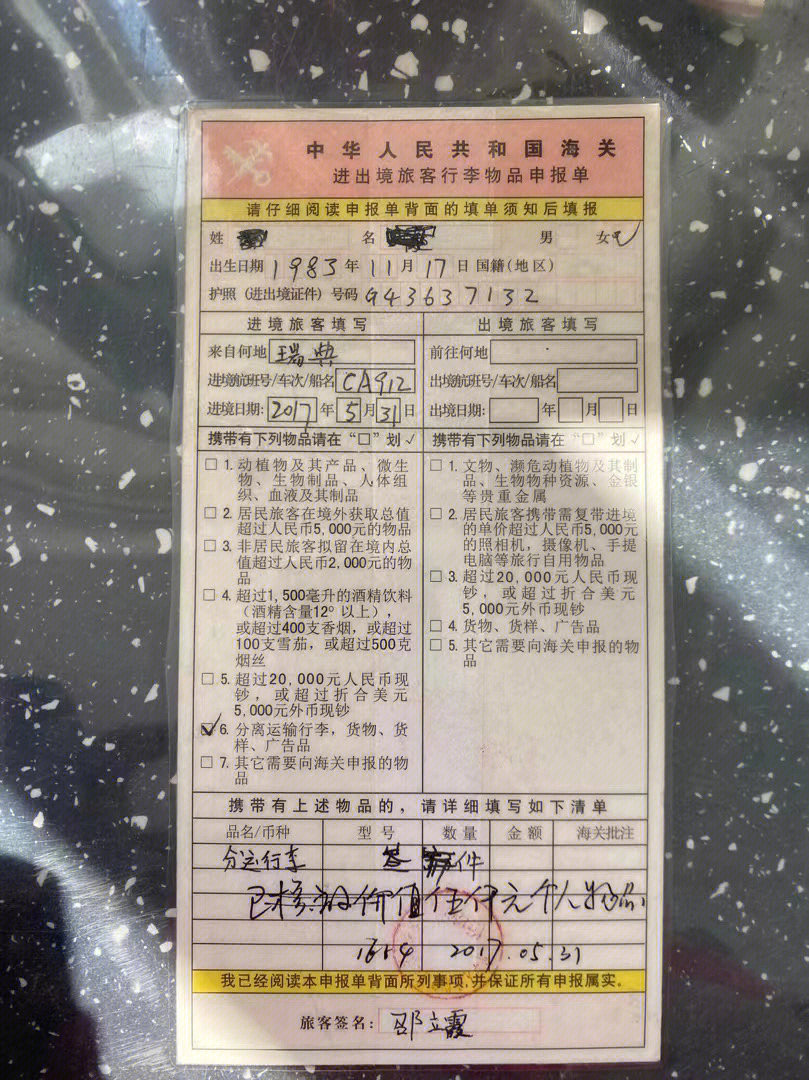 中华人民共和国海关
进出境旅客行李物品申报单
请仔细阅读申报单背面的填单须知后填报
姓 名 男 女✓
出生日期 1983 年 11 月 17 日 国籍(地区)
护照（进出境证件）号码 G43637132
进境旅客填写
来自何地 瑞典
进境航班号/车次/船名 CA912
进境日期: 2017 年 5 月 31 日
携带有下列物品请在“□”划✓
□ 1. 动植物及其产品、微生
物、生物制品、人体组
织、血液及其制品
□ 2. 居民旅客在境外获取总值
超过人民币5,000元的物品
□ 3. 非居民旅客拟留在境内总
值超过人民币2,000元的物
品
□ 4. 超过1,500毫升的酒精饮料
(酒精含量12°以上),
或超过400支香烟，或超过
100支雪茄，或超过500克
烟丝
□ 5. 超过20,000元人民币现
钞，或超过折合美元
5,000元外币现钞
☑ 6. 分离运输行李，货物、货
样、广告品
□ 7. 其它需要向海关申报的物
品
出境旅客填写
前往何地
出境航班号/车次/船名
出境日期: 年 月 日
携带有下列物品请在“□”划✓
□ 1. 文物、濒危动植物及其制
品、生物物种资源、金银
等贵重金属
□ 2. 居民旅客携带需复带进境
的单价超过人民币5,000元
的照相机，摄像机、手提
电脑等旅行自用物品
□ 3. 超过20,000元人民币现
钞，或超过折合美元
5,000元外币现钞
□ 4. 货物、货样、广告品
□ 5. 其它需要向海关申报的物
品
携带有上述物品的，请详细填写如下清单
品名/币种 型号 数量 金额 海关批注
分运行李 件
已核放价值伍仟元个人物品
1654 2017.05.31
我已经阅读本申报单背面所列事项,并保证所有申报属实。
旅客签名: 邵立霞